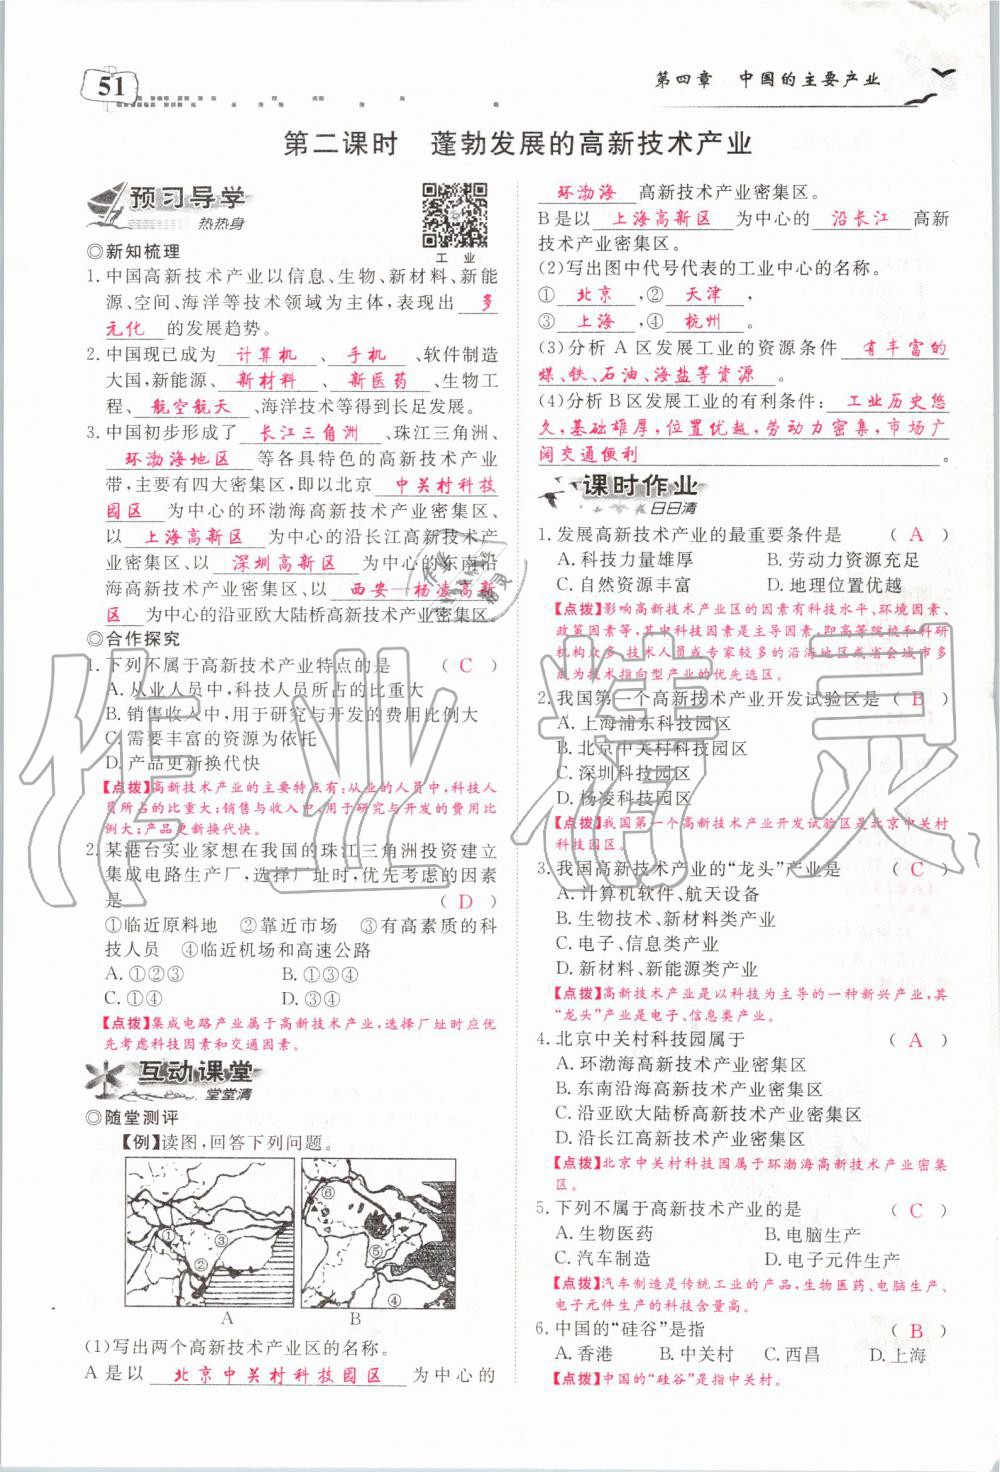 51
第四章 中国的主要产业
第二课时 蓬勃发展的高新技术产业
预习导学
热热身
工 业
◎新知梳理
1. 中国高新技术产业以信息、生物、新材料、新能
源、空间、海洋等技术领域为主体,表现出 多
元化 的发展趋势。
2. 中国现已成为 计算机 、 手机 、软件制造
大国,新能源、 新材料 、 新医药 、生物工
程、 航空航天 、海洋技术等得到长足发展。
3. 中国初步形成了 长江三角洲 、珠江三角洲、
环渤海地区 等各具特色的高新技术产业
带,主要有四大密集区,即以北京 中关村科技
园区 为中心的环渤海高新技术产业密集区、
以 上海高新区 为中心的沿长江高新技术产
业密集区、以 深圳高新区 为中心的东南沿
海高新技术产业密集区、以 西安—杨凌高新
区 为中心的沿亚欧大陆桥高新技术产业密集区。
◎合作探究
1. 下列不属于高新技术产业特点的是 ( C )
A. 从业人员中,科技人员所占的比重大
B. 销售收入中,用于研究与开发的费用比例大
C. 需要丰富的资源为依托
D. 产品更新换代快
【点拨】高新技术产业的主要特点有:从业的人员中,科技人
员所占的比重大;销售与收入中,用于研究与开发的费用比
例大;产品更新换代快。
2. 某港台实业家想在我国的珠江三角洲投资建立
集成电路生产厂,选择厂址时,优先考虑的因素
是 ( D )
①临近原料地 ②靠近市场 ③有高素质的科
技人员 ④临近机场和高速公路
A. ①②③ B. ①③④
C. ①④ D. ③④
【点拨】集成电路产业属于高新技术产业,选择厂址时应优
先考虑科技因素和交通因素。
互动课堂
堂堂清
◎随堂测评
【例】读图,回答下列问题。
① ③ ②
⑥ ⑤ ④
A B
(1)写出两个高新技术产业区的名称。
A是以 北京中关村科技园区 为中心的
环渤海 高新技术产业密集区。
B是以 上海高新区 为中心的 沿长江 高新
技术产业密集区。
(2)写出图中代号代表的工业中心的名称。
① 北京 ,② 天津 ,
③ 上海 ,④ 杭州 。
(3)分析A区发展工业的资源条件 有丰富的
煤、铁、石油、海盐等资源 。
(4)分析B区发展工业的有利条件: 工业历史悠
久,基础雄厚,位置优越,劳动力密集,市场广
阔交通便利 。
课时作业
日日清
1. 发展高新技术产业的最重要条件是 ( A )
A. 科技力量雄厚 B. 劳动力资源充足
C. 自然资源丰富 D. 地理位置优越
【点拨】影响高新技术产业区的因素有科技水平、环境因素、
政策因素等,其中科技因素是主导因素,即高等院校和科研
机构众多、技术人员或专家较多的沿海地区或省会城市多
成为技术指向型产业的优先选区。
2. 我国第一个高新技术产业开发试验区是 ( B )
A. 上海浦东科技园区
B. 北京中关村科技园区
C. 深圳科技园区
D. 杨凌科技园区
【点拨】我国第一个高新技术产业开发试验区是北京中关村
科技园区。
3. 我国高新技术产业的“龙头”产业是 ( C )
A. 计算机软件、航天设备
B. 生物技术、新材料类产业
C. 电子、信息类产业
D. 新材料、新能源类产业
【点拨】高新技术产业是以科技为主导的一种新兴产业,其
“龙头”产业是电子、信息类产业。
4. 北京中关村科技园属于 ( A )
A. 环渤海高新技术产业密集区
B. 东南沿海高新技术产业密集区
C. 沿亚欧大陆桥高新技术产业密集区
D. 沿长江高新技术产业密集区
【点拨】北京中关村科技园属于环渤海高新技术产业密集
区。
5. 下列不属于高新技术产业的是 ( C )
A. 生物医药 B. 电脑生产
C. 汽车制造 D. 电子元件生产
【点拨】汽车制造是传统工业的产品,生物医药、电脑生产、
电子元件生产的科技含量高。
6. 中国的“硅谷”是指 ( B )
A. 香港 B. 中关村 C. 西昌 D. 上海
【点拨】中国的“硅谷”是指中关村。
作业精灵